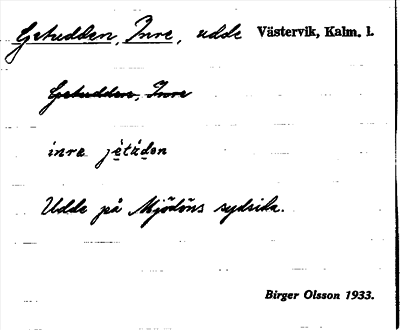 Getudden, Inre, udde Västervik, Kalm. l.
Getudden, Inre
inre jètúdən
Udde på Mjödöns sydsida.
Birger Olsson 1933.